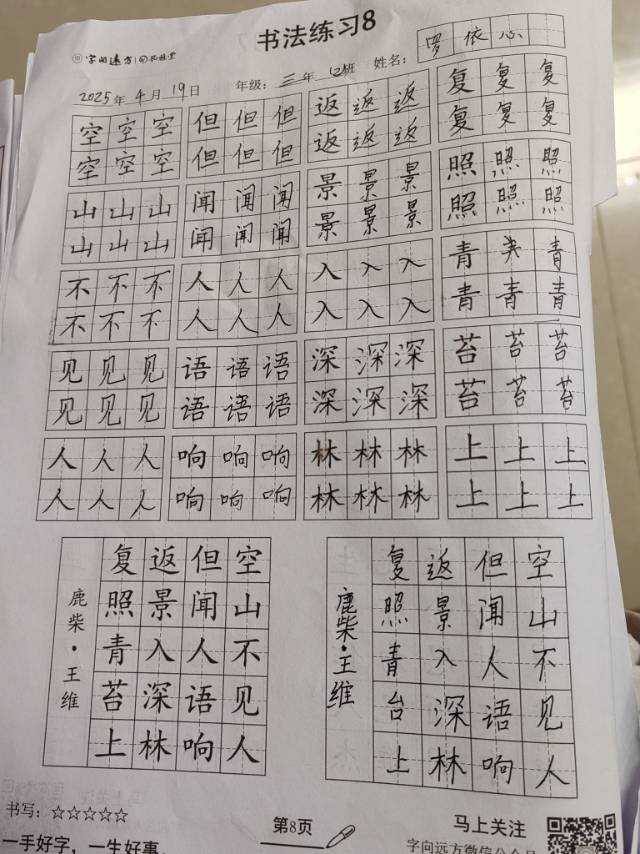 书法练习8
字向远方
2025年4月19日 年级：三年 班 姓名：罗依心
空空空 但但但 返返返 复复复
空空空 但但但 返返返 复复复
山山山 闻闻闻 景景景 照照照
山山山 闻闻闻 景景景 照照照
不不不 人人人 入入入 青 青
不不不 人人人 入入入 青青青
见见见 语语语 深深深 苔苔苔
见见见 语语语 深深深 苔苔苔
人人人 响响响 林林林 上上上
人人人 响响响 林林林 上上上
鹿柴·王维
空山不见人
但闻人语响
返景入深林
复照青苔上
鹿柴·王维
空山不见人
但闻人语响
返景入深林
复照青台上
书写：☆☆☆☆☆
第8页
马上关注
一手好字，一生好事。
字向远方微信公众号